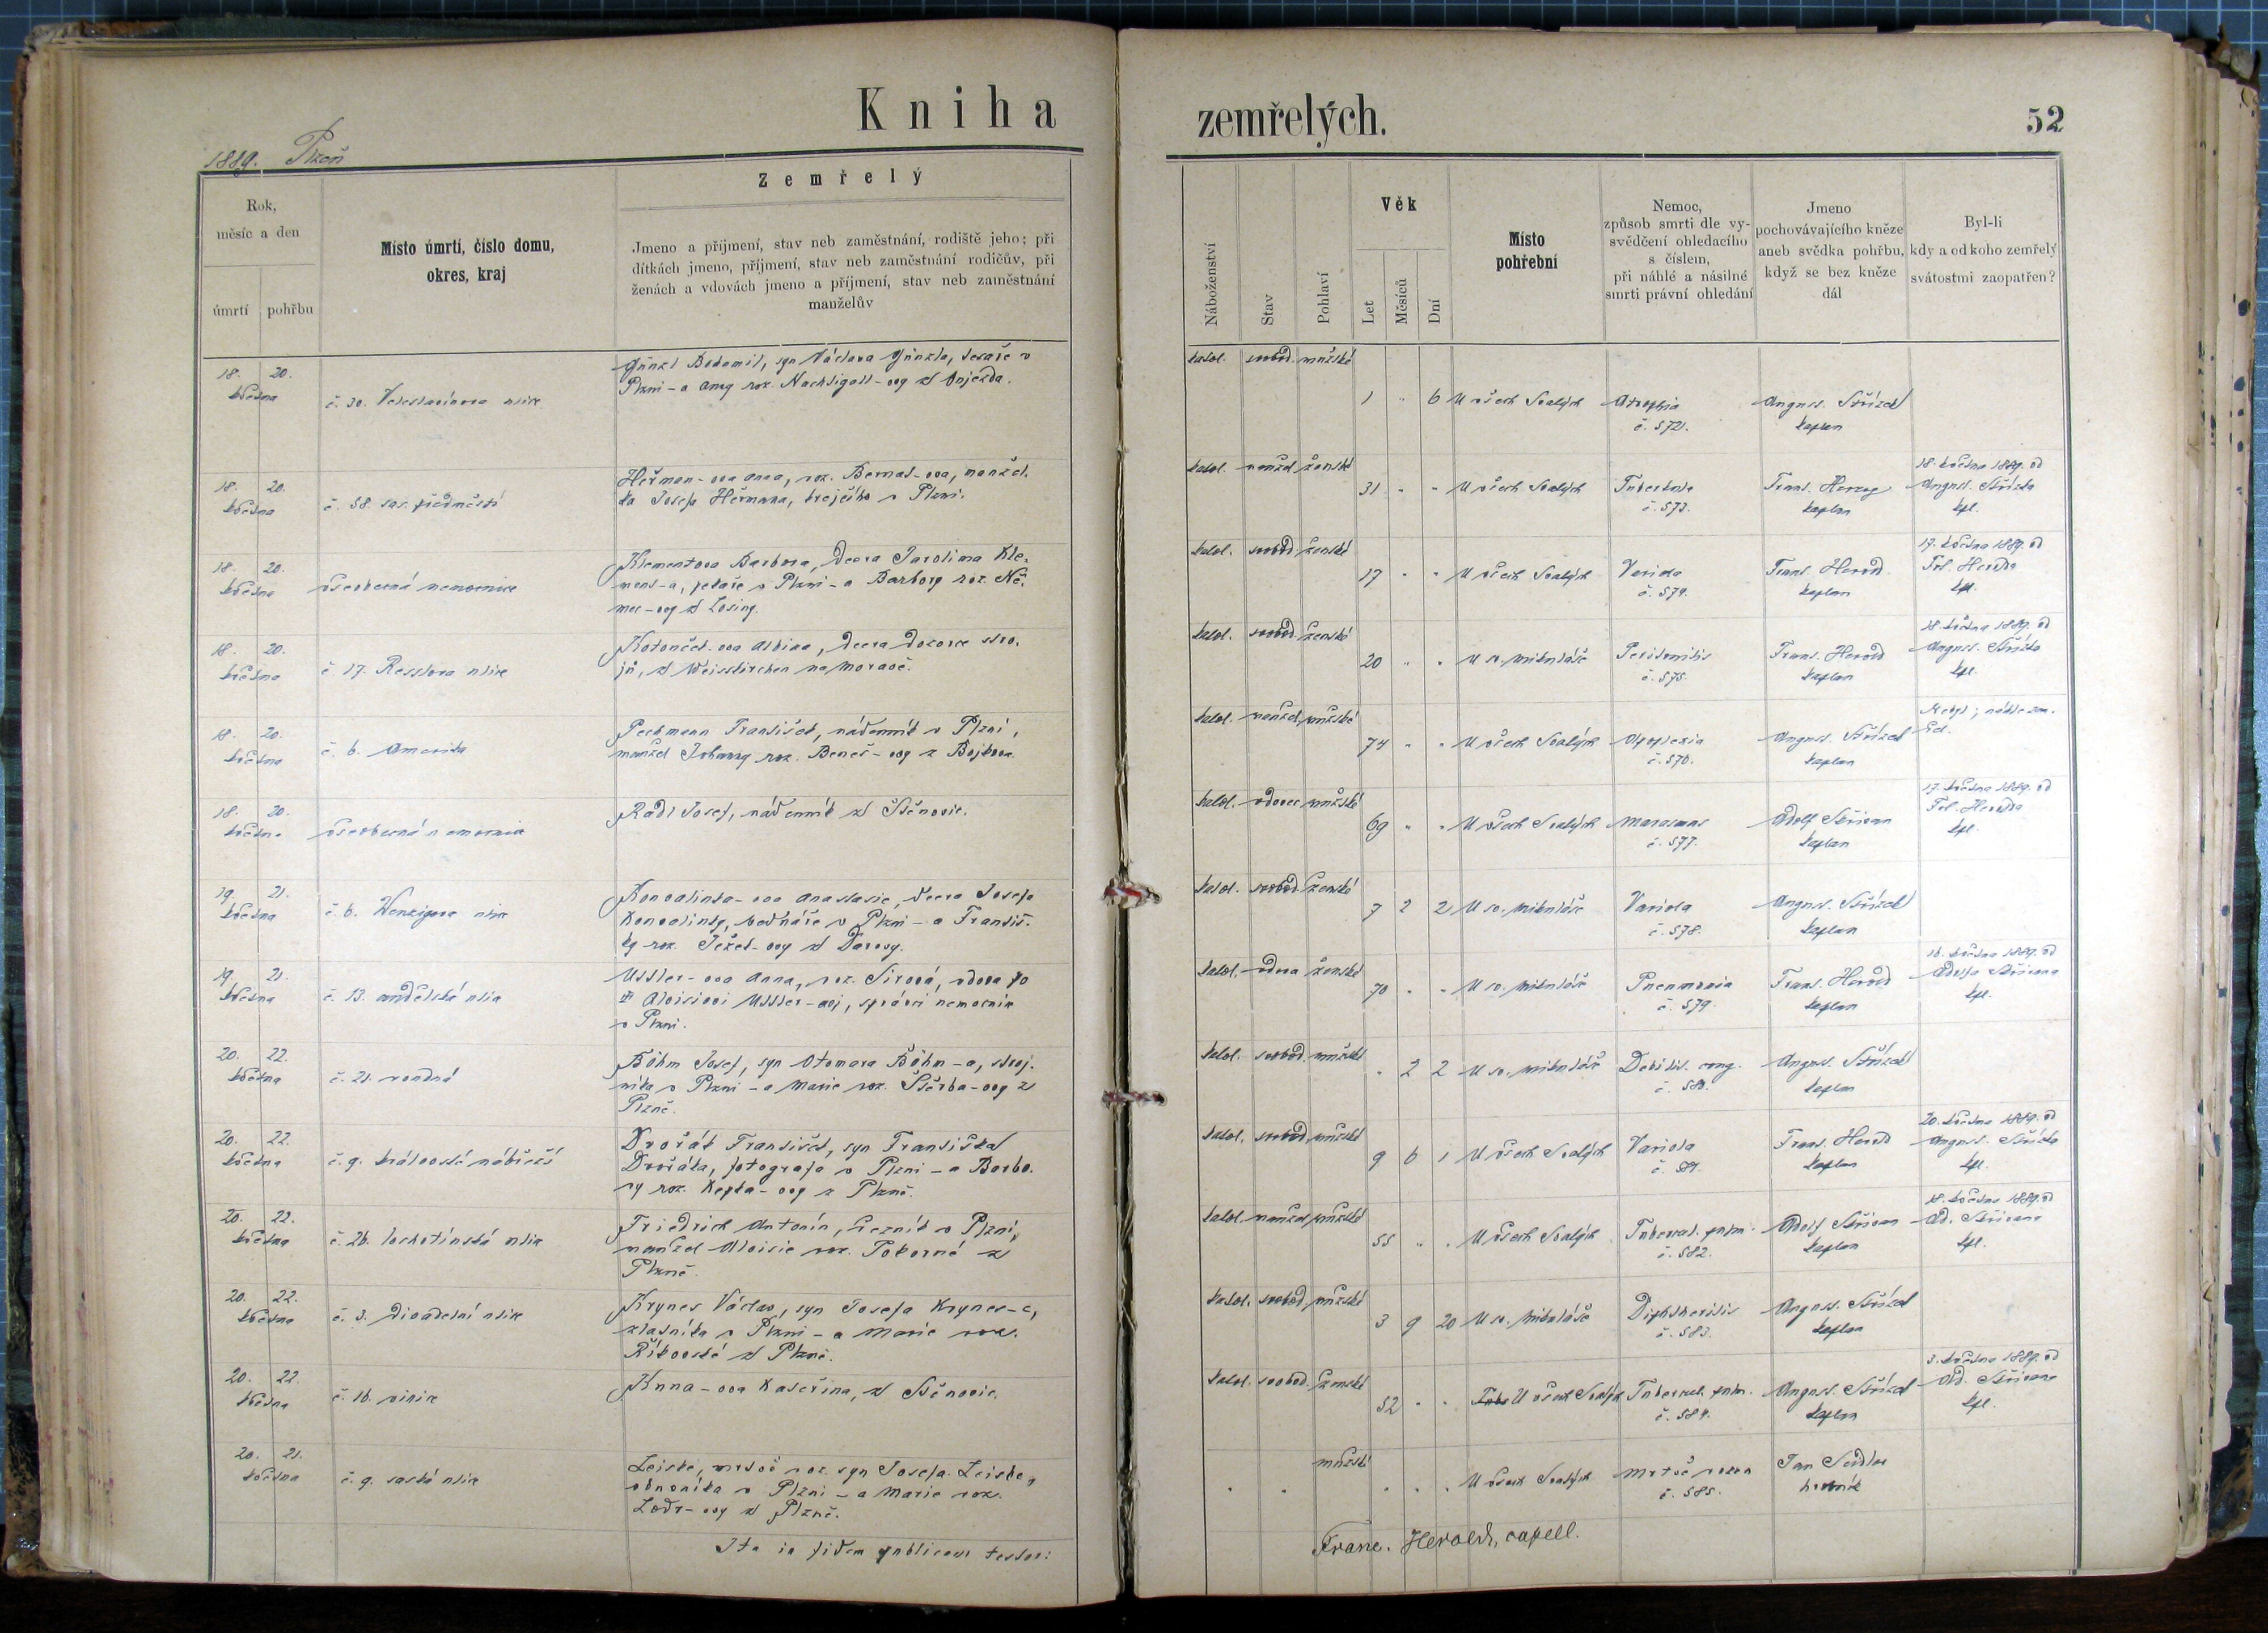 Kniha zemřelých.
52
1889. Plzeň
Rok,
měsíc a den
úmrtí
pohřbu
Místo úmrtí, číslo domu,
okres, kraj
Zemřelý
Jmeno a příjmení, stav neb zaměstnání, rodiště jeho; při
dítkách jmeno, příjmení, stav neb zaměstnání rodičův, při
ženách a vdovách jmeno a příjmení, stav neb zaměstnání
manželův
Náboženství
Stav
Pohlaví
Věk
Let
Měsíců
Dní
Místo
pohřební
Nemoc,
způsob smrti dle vy-
svědčení ohledacího
s číslem,
při náhlé a násilné
smrti právní ohledání
Jmeno
pochovávajícího kněze
aneb svědka pohřbu,
když se bez kněze
dál
Byl-li
kdy a od koho zemřelý
svátostmi zaopatřen?
18. 20.
května
č. 30. Veleslavínova ulice
Günzl Bohumil, syn Václava Günzla, tesaře v
Plzni - a Anny roz. Nachtigall-ovy z Újezda.
katol. svobod. mužské
1 " 6 U všech Svatých Atrophia
č. 572.
August. Střízek
kaplan
18. 20.
května
č. 58. sas. předměstí
Heřman-ova Anna, roz. Bernat-ova, manžel.
ka Josefa Heřmana, krejčího v Plzni.
katol. manžel. ženské
31 " " U všech Svatých
č. 573.
Frant. Herold
kaplan
18. května 1889. od
August. Střízka
kpl.
18. 20.
května
všeobecná nemocnice
Klementova Barbora, dcera Jarolima Kle-
ment-a, pekaře v Plzni - a Barbory roz. Ně-
mec-ovy z Losiny.
katol. svobod. ženské
17 " " U všech Svatých Variola
č. 574.
Frant. Herold
kaplan
17. května 1889. od
Fr. Herolda
kpl.
18. 20.
května
č. 17. Resslova ulice
Kotouček-ova Albina, dcera dozorce stro-
jů, z Weisskirchen na Moravě.
katol. svobod. ženské
20 " " U sv. Mikuláše Peritonitis
č. 575.
Frant. Herold
kaplan
18. května 1889. od
August. Střízka
kpl.
18. 20.
května
č. 6. Amerika
Pechmann František, nádenník v Plzni,
manžel Johanny roz. Beneš-ovy z
katol. manžel. mužské
74 " " U všech Svatých Apoplexia
č. 576.
August. Střízek
kaplan
Nebyl; náhle zem-
řel.
18. 20.
května
všeobecná nemocnice
Rádl Josef, nádenník z Štěnovic.
katol. vdovec mužské
69 " " U všech Svatých Marasmus
č. 577.
Adolf Skřivan
kaplan
17. května 1889. od
Fr. Herolda
kpl.
19. 21.
května
č. 6. Wenzigova ulice
Konvalinka-ova Anastasie, dcera Josefa
Konvalinky, bednáře v Plzni - a Františ-
ky roz. Ježek-ovy z Darovy.
katol. svobod. ženské
7 2 2 U sv. Mikuláše Variola
č. 578.
August. Střízek
kaplan
19. 21.
května
č. 13. andělská ulice
Ussler-ova Anna, roz. Sirová, vdova po
† Aloisiovi Ussler-ovi, správci nemocnice
v Plzni.
katol. vdova ženské
70 " " U sv. Mikuláše Pneumonia
č. 579.
Frant. Herold
kaplan
16. května 1889. od
Adolfa Skřivana
kpl.
20. 22.
května
č. 21. roudná
Böhm Josef, syn Otomara Böhm-a, stroj-
níka v Plzni - a Marie roz. Štěrba-ovy z
Plzně.
katol. svobod. mužské
" 2 2 U sv. Mikuláše Debilit. cong.
č. 580.
August. Střízek
kaplan
20. 22.
května
č. 9. královské nábřeží
Dvořák František, syn Františka
Dvořáka, fotografa v Plzni - a Barbo-
ry roz. Kepka-ovy z Plzně.
katol. svobod. mužské
9 6 1 U všech Svatých Variola
č. 581.
Frant. Herold
kaplan
20. května 1889. od
August. Střízka
kpl.
20. 22.
května
č. 26. lochotínská ulice
Friedrich Antonín, řezník v Plzni,
manžel Aloisie roz. Pokorné z
Plzně.
katol. manžel. mužské
55 " " U všech Svatých Tubercul. pulm.
č. 582.
Adolf Skřivan
kaplan
18. května 1889. od
Ad. Skřivana
kpl.
20. 22.
května
č. 3. divadelní ulice
Krynes Václav, syn Josefa Krynes-a,
zlatníka v Plzni - a Marie roz.
Říkovské z Plzně.
katol. svobod. mužské
3 9 20 U sv. Mikuláše Diphtheritis
č. 583.
August. Střízek
kaplan
20. 22.
května
č. 16. vinice
-ova Kateřina, z Štěnovic.
katol. svobod. ženské
52 " " U všech Svatých Tubercul. pulm.
č. 584.
August. Střízek
kaplan
3. května 1889. od
Ad. Skřivana
kpl.
20. 21.
května
č. 9. saská ulice
Leiske, mrtvě roz. syn Josefa Leiske,
obuvníka v Plzni - a Marie roz.
-ovy z Plzně.
" " mužské
" " " U všech Svatých Mrtvě rozen
č. 585.
Jan Sedlec
hrobník
Ita in fidem publicam testor:
Franc. Herold, capell.